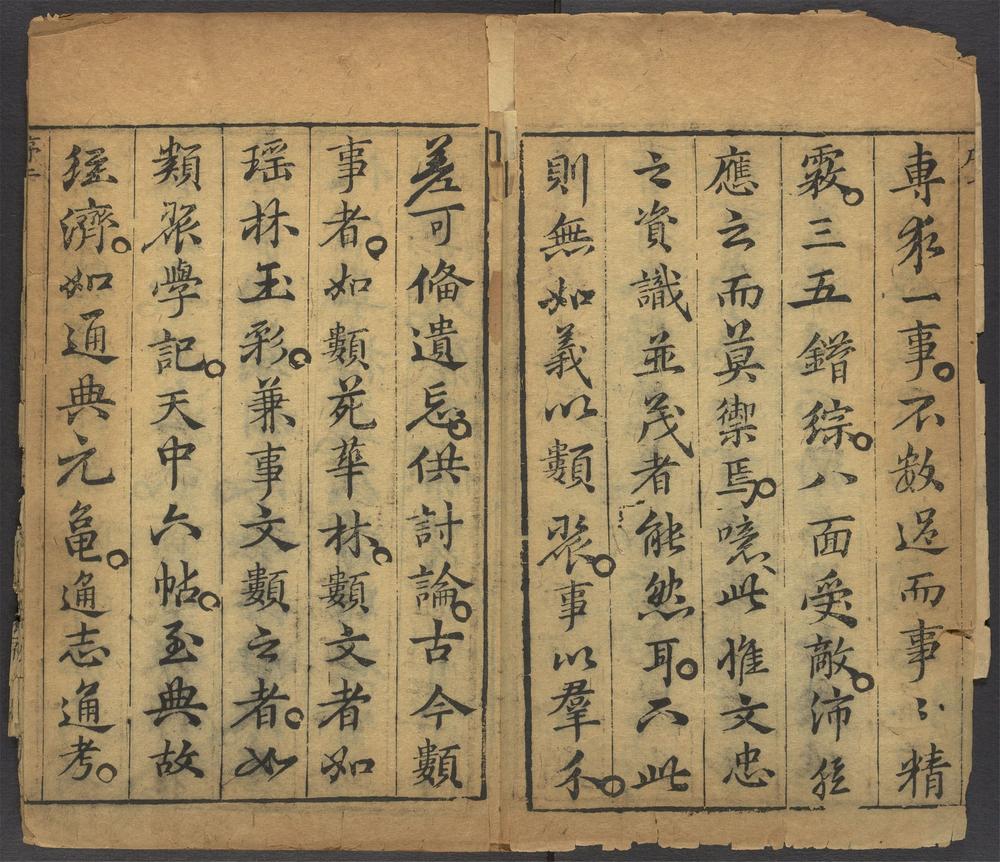 專求一事。不數過而事〻精
覈。三五錯綜。八面受敵。沛然
應之而莫禦焉。噫此惟文忠
之資識並茂者能然耳。下此
則無如義以類聚。事以羣分。
差可俻遺忘。供討論。古今類
事者。如類苑華林。類文者如
瑤林玉彩。兼事文類之者。如
類聚學記。天中六帖。至典故
經濟。如通典元龜。通志通考。
序二